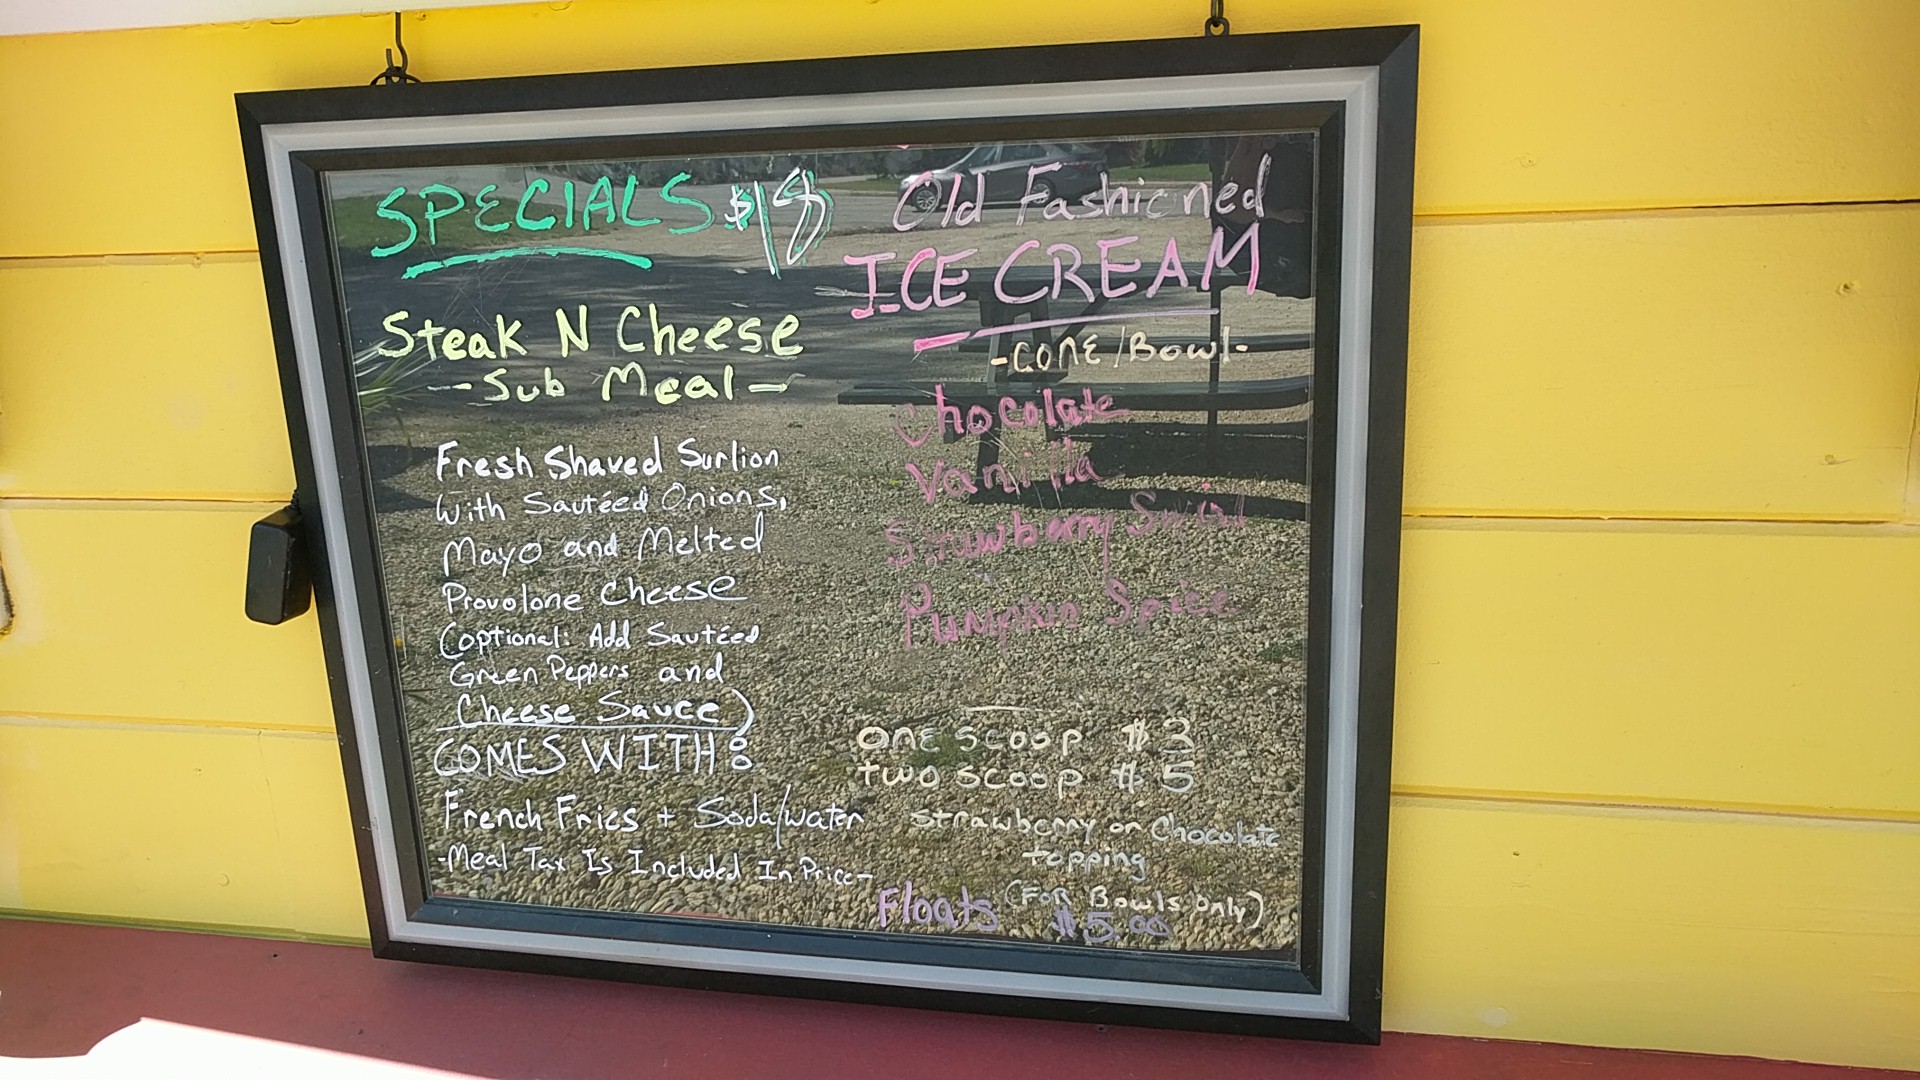 SPECIALS $18
Steak N Cheese
-Sub Meal-
Fresh Shaved Surlion
With Sautéed Onions,
Mayo and Melted
Provolone Cheese
(optional: Add Sautéed
Green Peppers and
Cheese Sauce)
COMES WITH:
French Fries + Soda/water
-Meal Tax Is Included In Price-
Old Fashioned
ICE CREAM
-CONE/Bowl-
Chocolate
Vanilla
Strawberry Swirl
Pumpkin Spice
ONE SCOOP $3
TWO SCOOP $5
strawberry or Chocolate
topping
(FOR Bowls Only)
Floats $5.00